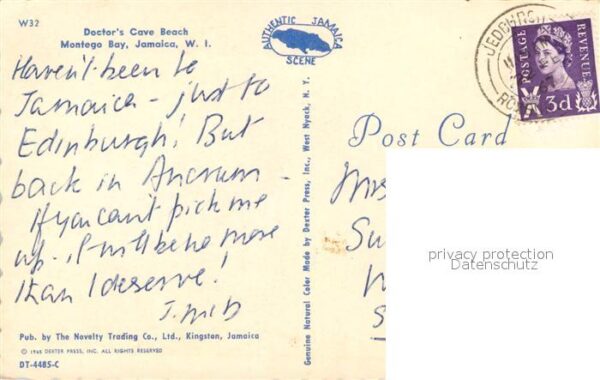 W32
Doctor's Cave Beach
Montego Bay, Jamaica, W. I.
AUTHENTIC JAMAICA
SCENE
Haven't been to
Jamaica – just to
Edinburgh! But
back in Ancrum –
If you can't pick me
up – it will be no more
than I deserve!
Pub. by The Novelty Trading Co., Ltd., Kingston, Jamaica
© 1965 DEXTER PRESS, INC. ALL RIGHTS RESERVED
DT-4485-C
Genuine Natural Color Made by Dexter Press, Inc., West Nyack, N. Y.
Post Card
JEDBURGH
POSTAGE
REVENUE
3d
Mrs
Su
privacy protection
Datenschutz